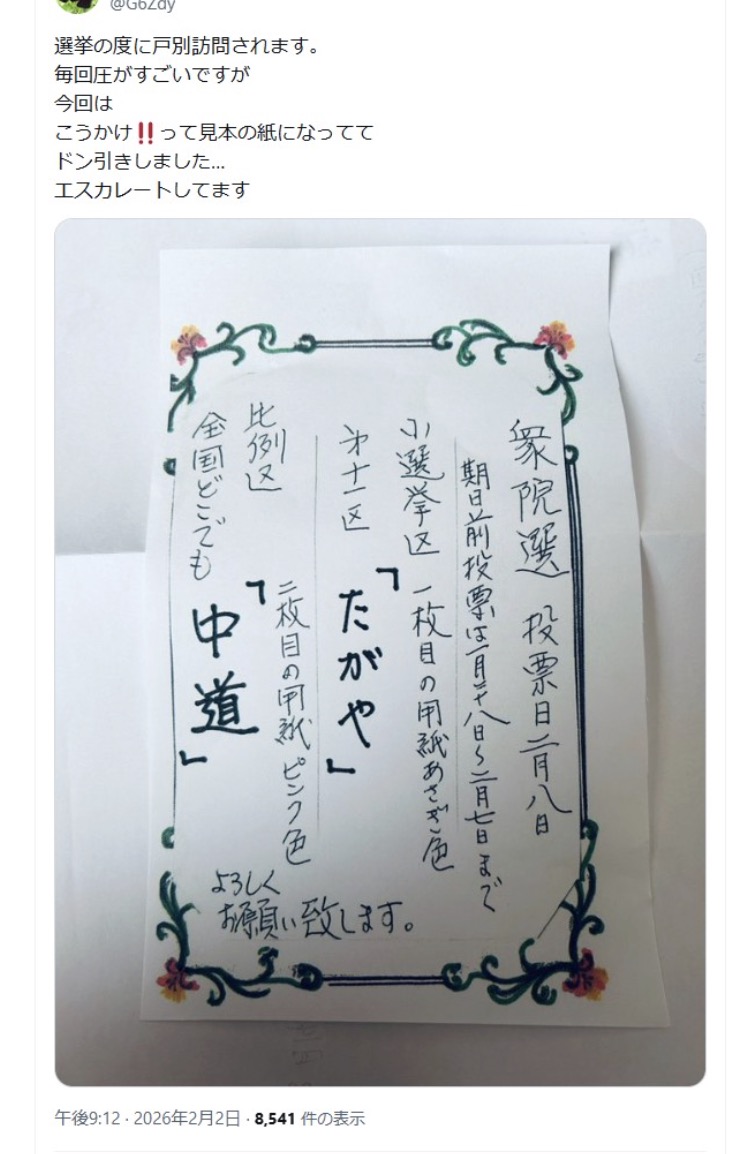 @G6Zdy
選挙の度に戸別訪問されます。
毎回圧がすごいですが
今回は
こうかけ‼️って見本の紙になってて
ドン引きしました...
エスカレートしてます
衆院選 投票日二月八日
期日前投票は一月二十八日～二月七日まで
小選挙区 一枚目の用紙あさぎ色
第十一区 「たがや」
比例区 二枚目の用紙ピンク色
全国どこでも 「中道」
よろしく
お願い致します。
午後9:12 · 2026年2月2日 · 8,541 件の表示